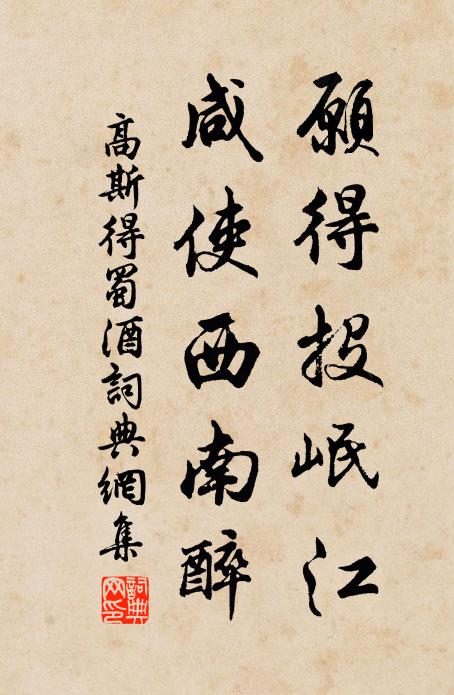 願得投岷江
咸使西南醉
高斯得蜀酒詞典網集
詞典網印